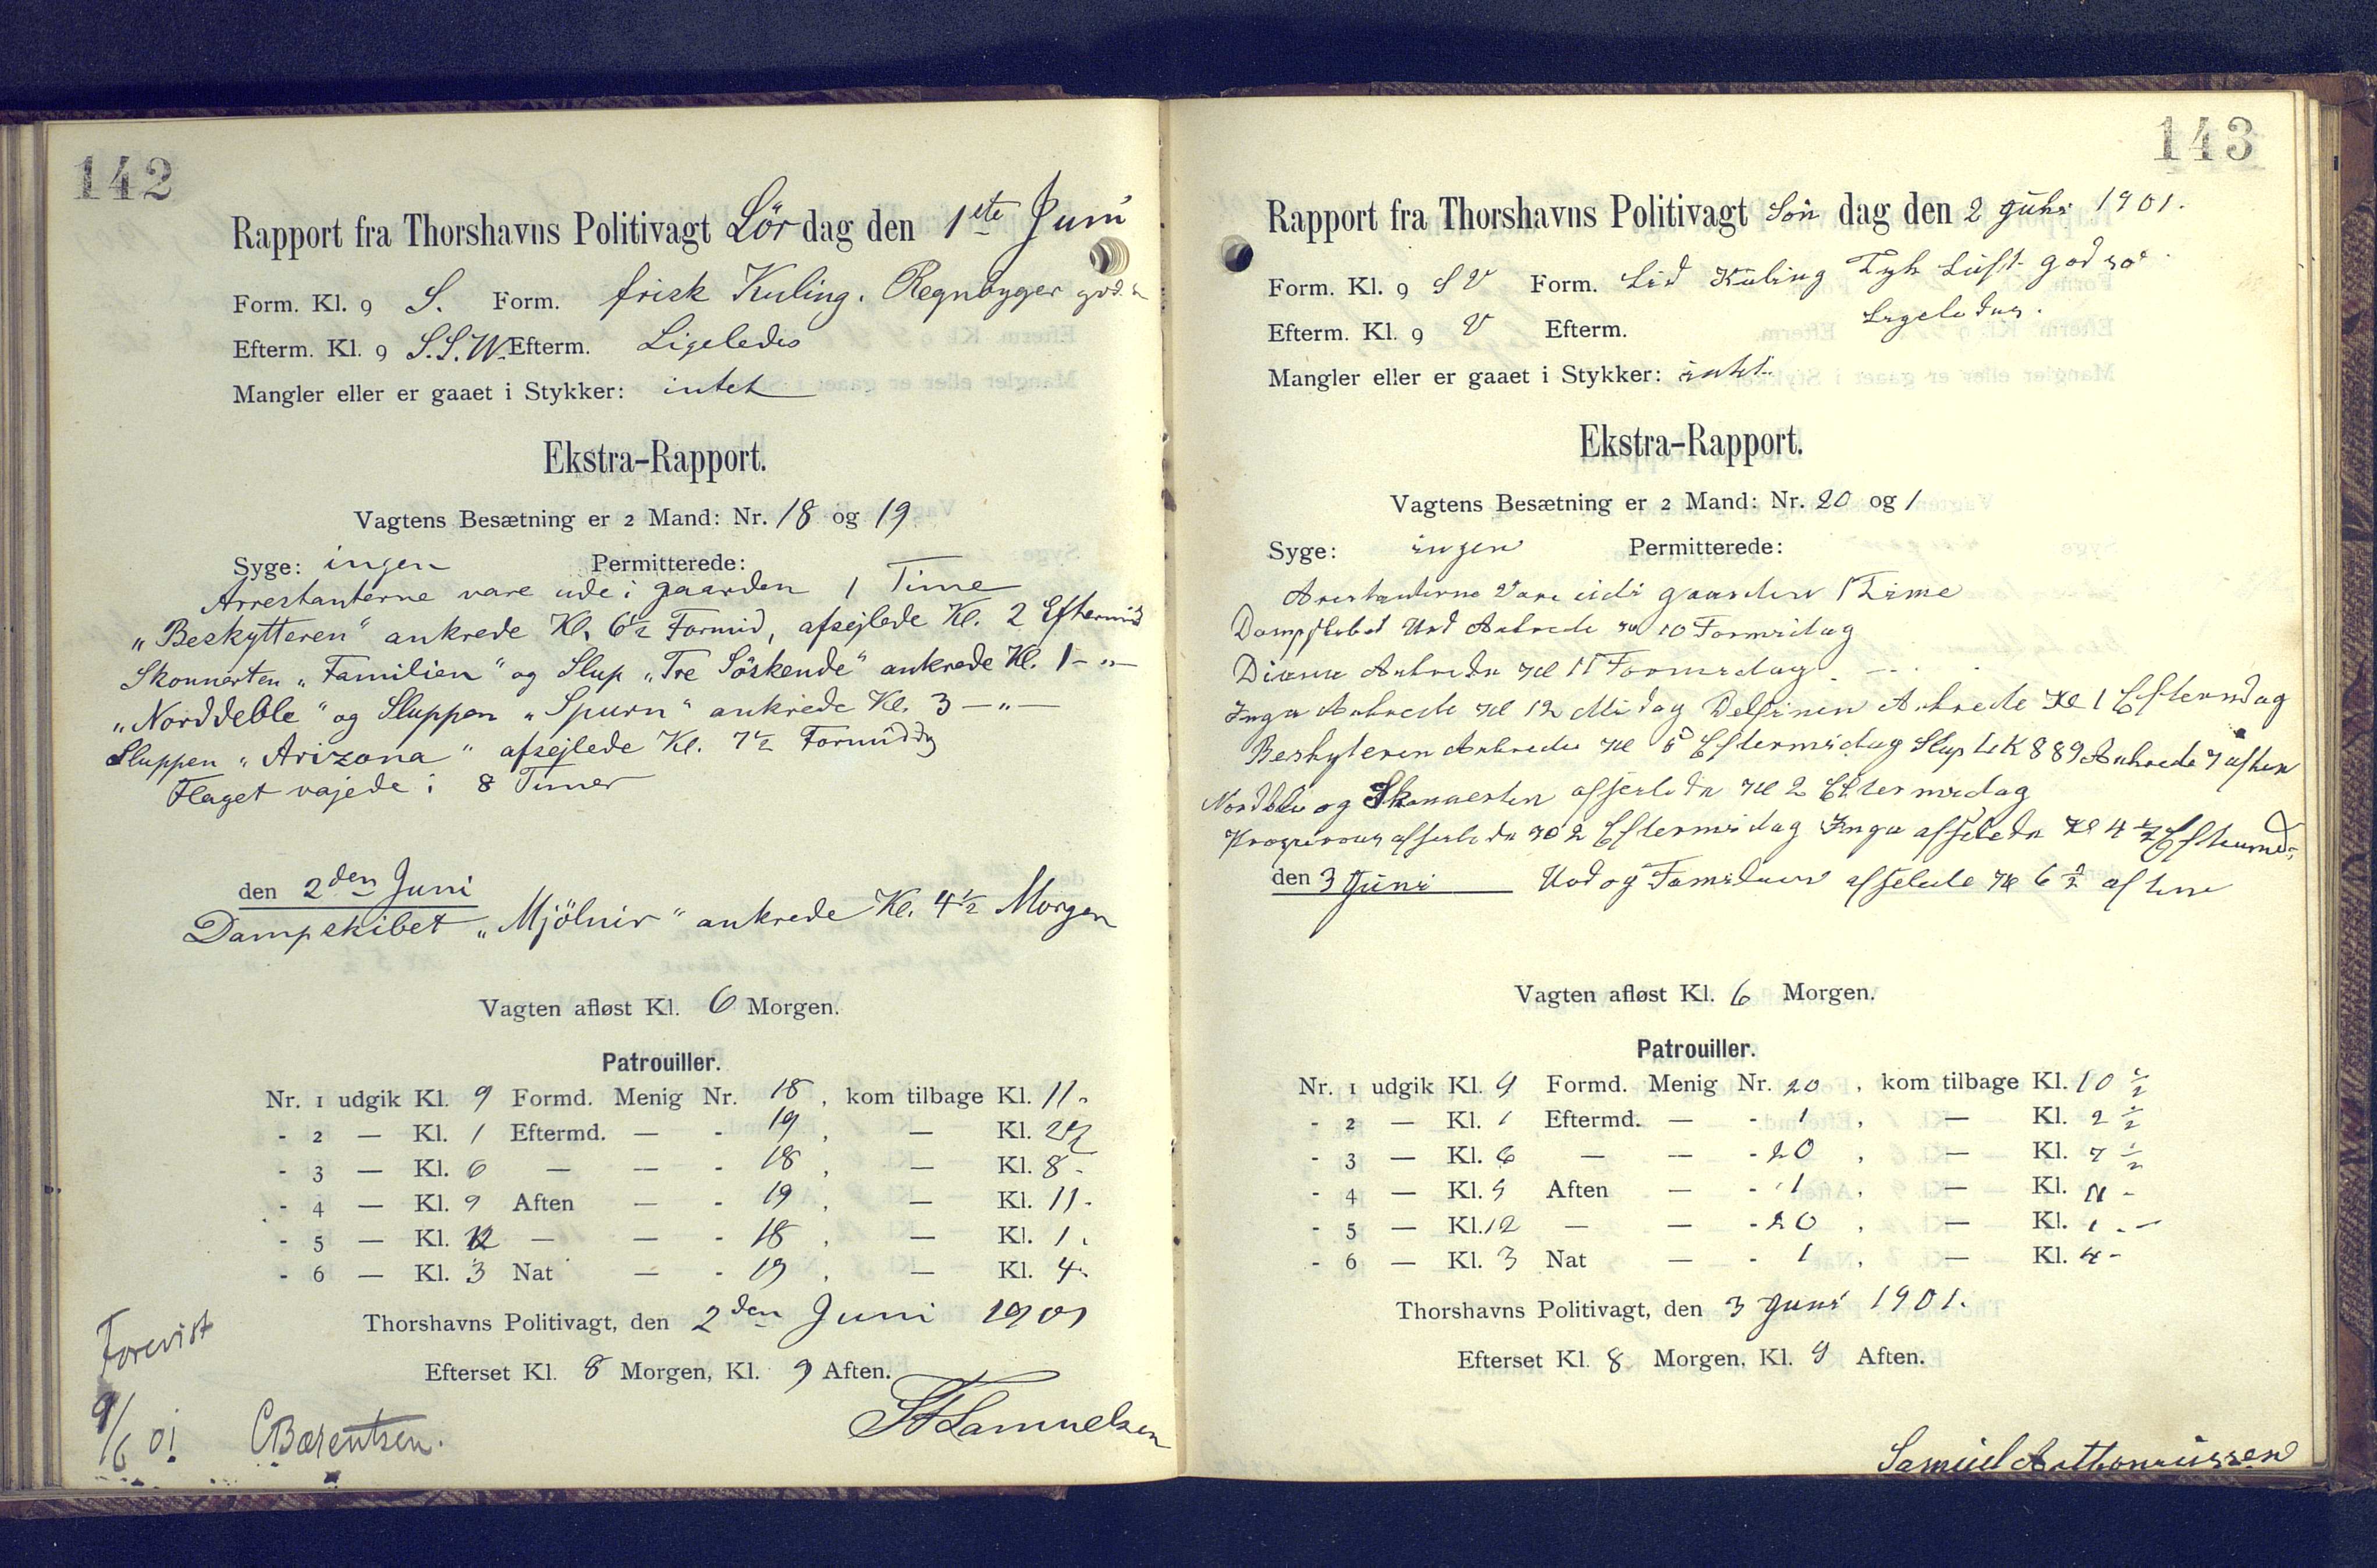 142
Rapport fra Thorshavns Politivagt Lördag den 1ste Juni
Form. Kl. 9 S. Form. frisk Kuling. Regnbyger god
Efterm. Kl. 9 S.S.W. Efterm. Ligeledes
Mangler eller er gaaet i Stykker: intet
Ekstra-Rapport.
Vagtens Besætning er 2 Mand: Nr. 18 og 19
Syge: ingen Permitterede:
Arrestanterne vare ude i gaarden 1 Time
„Beskytteren“ ankrede Kl. 6½ Formid, afsejlede Kl. 2 Eftermid
Skonnerten „Familien“ og Slup „Tre Söskende“ ankrede Kl. 1 – „ –
„Norddeble“ og Sluppen „Spurn“ ankrede Kl. 3 – „ –
Sluppen „Arizona“ afsejlede Kl. 7½ Formiddg
Flaget vajede i 8 Timer
den 2den Juni
Dampskibet „Mjölnir“ ankrede Kl. 4½ Morgen
Vagten afløst Kl. 6 Morgen.
Patrouiller.
Nr. 1 udgik Kl. 9 Formd. Menig Nr. 18, kom tilbage Kl. 11 -
- 2 — Kl. 1 Eftermd. — - 19, — Kl. 2½
- 3 — Kl. 6 — — - 18, — Kl. 8 -
- 4 — Kl. 9 Aften — - 19, — Kl. 11 -
- 5 — Kl. 12 — — - 18, — Kl. 1.
- 6 — Kl. 3 Nat — - 19, — Kl. 4 -
Thorshavns Politivagt, den 2den Juni 1901
Efterset Kl. 8 Morgen, Kl. 9 Aften.
Samuelsen
Forevist
9/6 01
CBærentsen.
143
Rapport fra Thorshavns Politivagt Sön dag den 2 Juni 1901.
Form. Kl. 9 S V Form. Lid Kuling Tyk Luft god
Efterm. Kl. 9 V Efterm. Ligeledes.
Mangler eller er gaaet i Stykker: intet
Ekstra-Rapport.
Vagtens Besætning er 2 Mand: Nr. 20 og 1
Syge: ingen Permitterede:
Arestanterne Vare udi gaarden 1 Time
Dampskibet Ankrede 10 Formidag
Diana Ankrede Kl 11 Formidag
Inga Ankrede Kl 12 Midag Delfinen Ankrede Kl 1 Eftermdag
Beskyteren Ankrede Kl Eftermidag Slup LK 889 Ankrede 7 aften
og Skonnerten afseilede Kl 2 Eftermidag
afseilede Kl 2 Eftermidag Inga afseilede Kl 4½ Eftermd
den 3 Juni og afseilede Kl 6½ aften
Vagten afløst Kl. 6 Morgen.
Patrouiller.
Nr. 1 udgik Kl. 9 Formd. Menig Nr. 20, kom tilbage Kl. 10½
- 2 — Kl. 1 Eftermd. — - 1, — Kl. 2½
- 3 — Kl. 6 — — - 20, — Kl. 7½
- 4 — Kl. 9 Aften — - 1, — Kl. 11 -
- 5 — Kl. 12 — — - 20, — Kl. 1. -
- 6 — Kl. 3 Nat — - 1, — Kl. 4 -
Thorshavns Politivagt, den 3 Juni 1901.
Efterset Kl. 8 Morgen, Kl. 9 Aften.
Samuel Anthoniussen